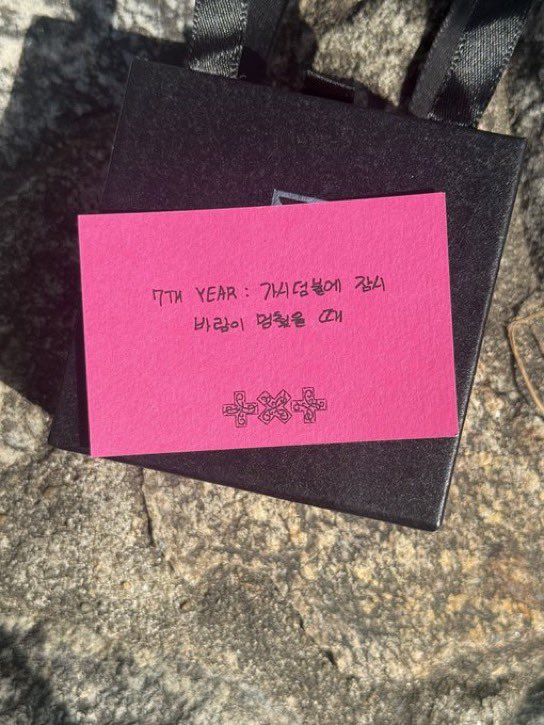 7TH YEAR : 가시덤불에 잠시
바람이 멈췄을 때
TXT